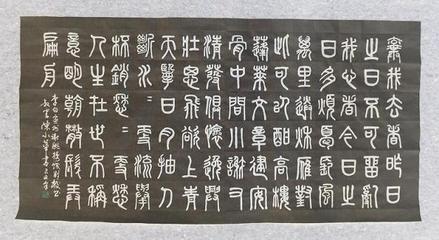 棄我去者昨日
之日不可留亂
我心者今日之
日多煩憂長風
萬里送秋雁對
此可以酣高樓
蓬萊文章建安
骨中間小謝又
清發俱懷逸興
壯思飛欲上青
天擥日月抽刀
斷水〻更流舉
杯銷愁〻更愁
人生在世不稱
意明朝散髮弄
扁舟
李白宣州謝朓樓餞別校書
叔雲 陳小華書